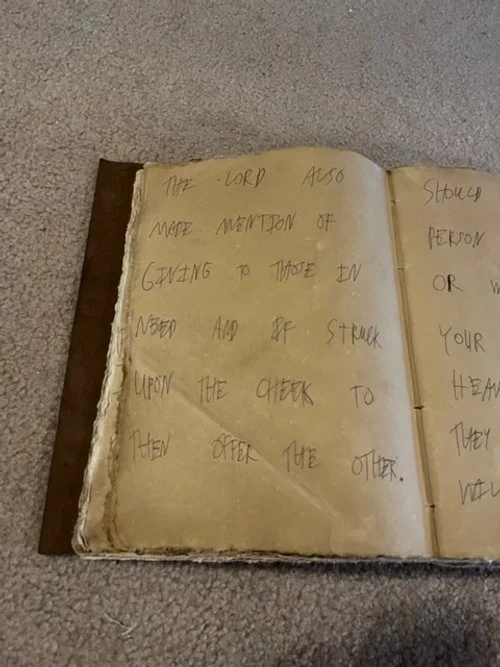 THE LORD ALSO
MADE MENTION OF
GIVING TO THOSE IN
NEED AND IF STRUCK
UPON THE CHEEK TO
THEN OFFER THE OTHER.
SHOULD
PERSON
OR
YOUR
THEY